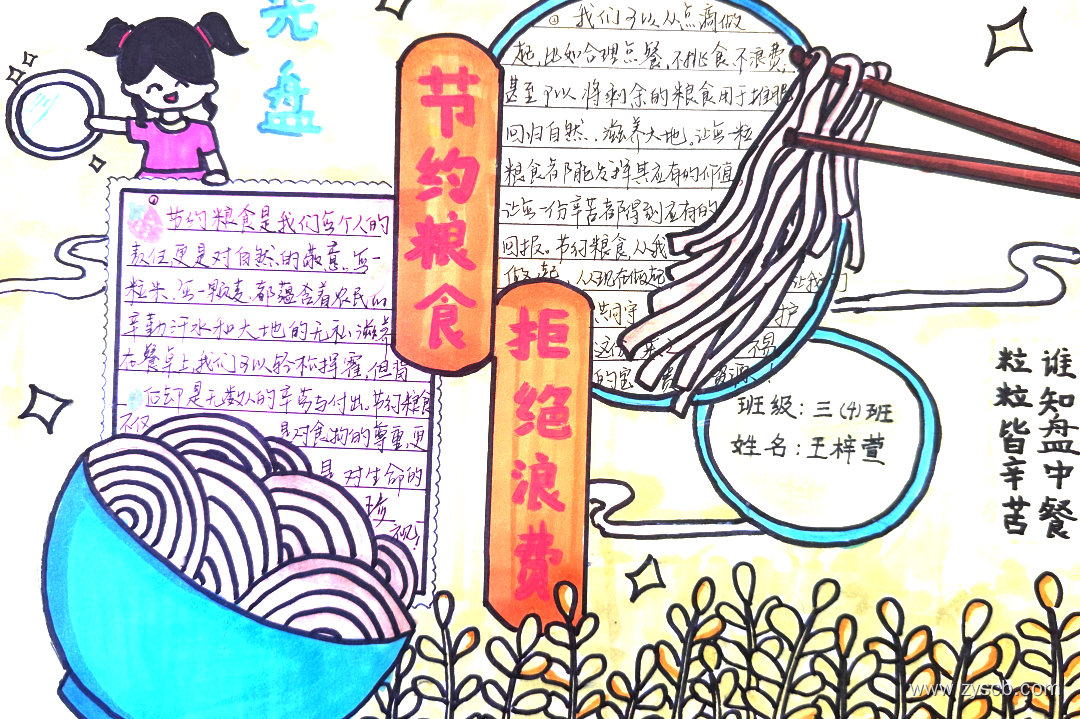 光
盘
节约粮食
拒绝浪费
节约粮食是我们每个人的
责任更是对自然的敬意。每一
粒米、每一颗麦、都蕴含着农民的
辛勤汗水和大地的无私滋养
在餐桌上我们可以轻松挥霍,但背
后却是无数人的辛苦与付出。节约粮食
不仅是对食物的尊重,更
是对生命的
珍
视!
①我们可以从点滴做
起,比如合理点餐,不挑食不浪费,
甚至可以将剩余的粮食用于堆肥
回归自然、滋养大地。让每一粒
粮食都能发挥其应有的价值,
让每一份辛苦都得到应有的
回报。节约粮食,从我
做起,从现在做起 让我们
共同守 护
这 易
的宝
班级:三(4)班
姓名:王梓萱
谁知盘中餐
粒粒皆辛苦
www.zyscb.com